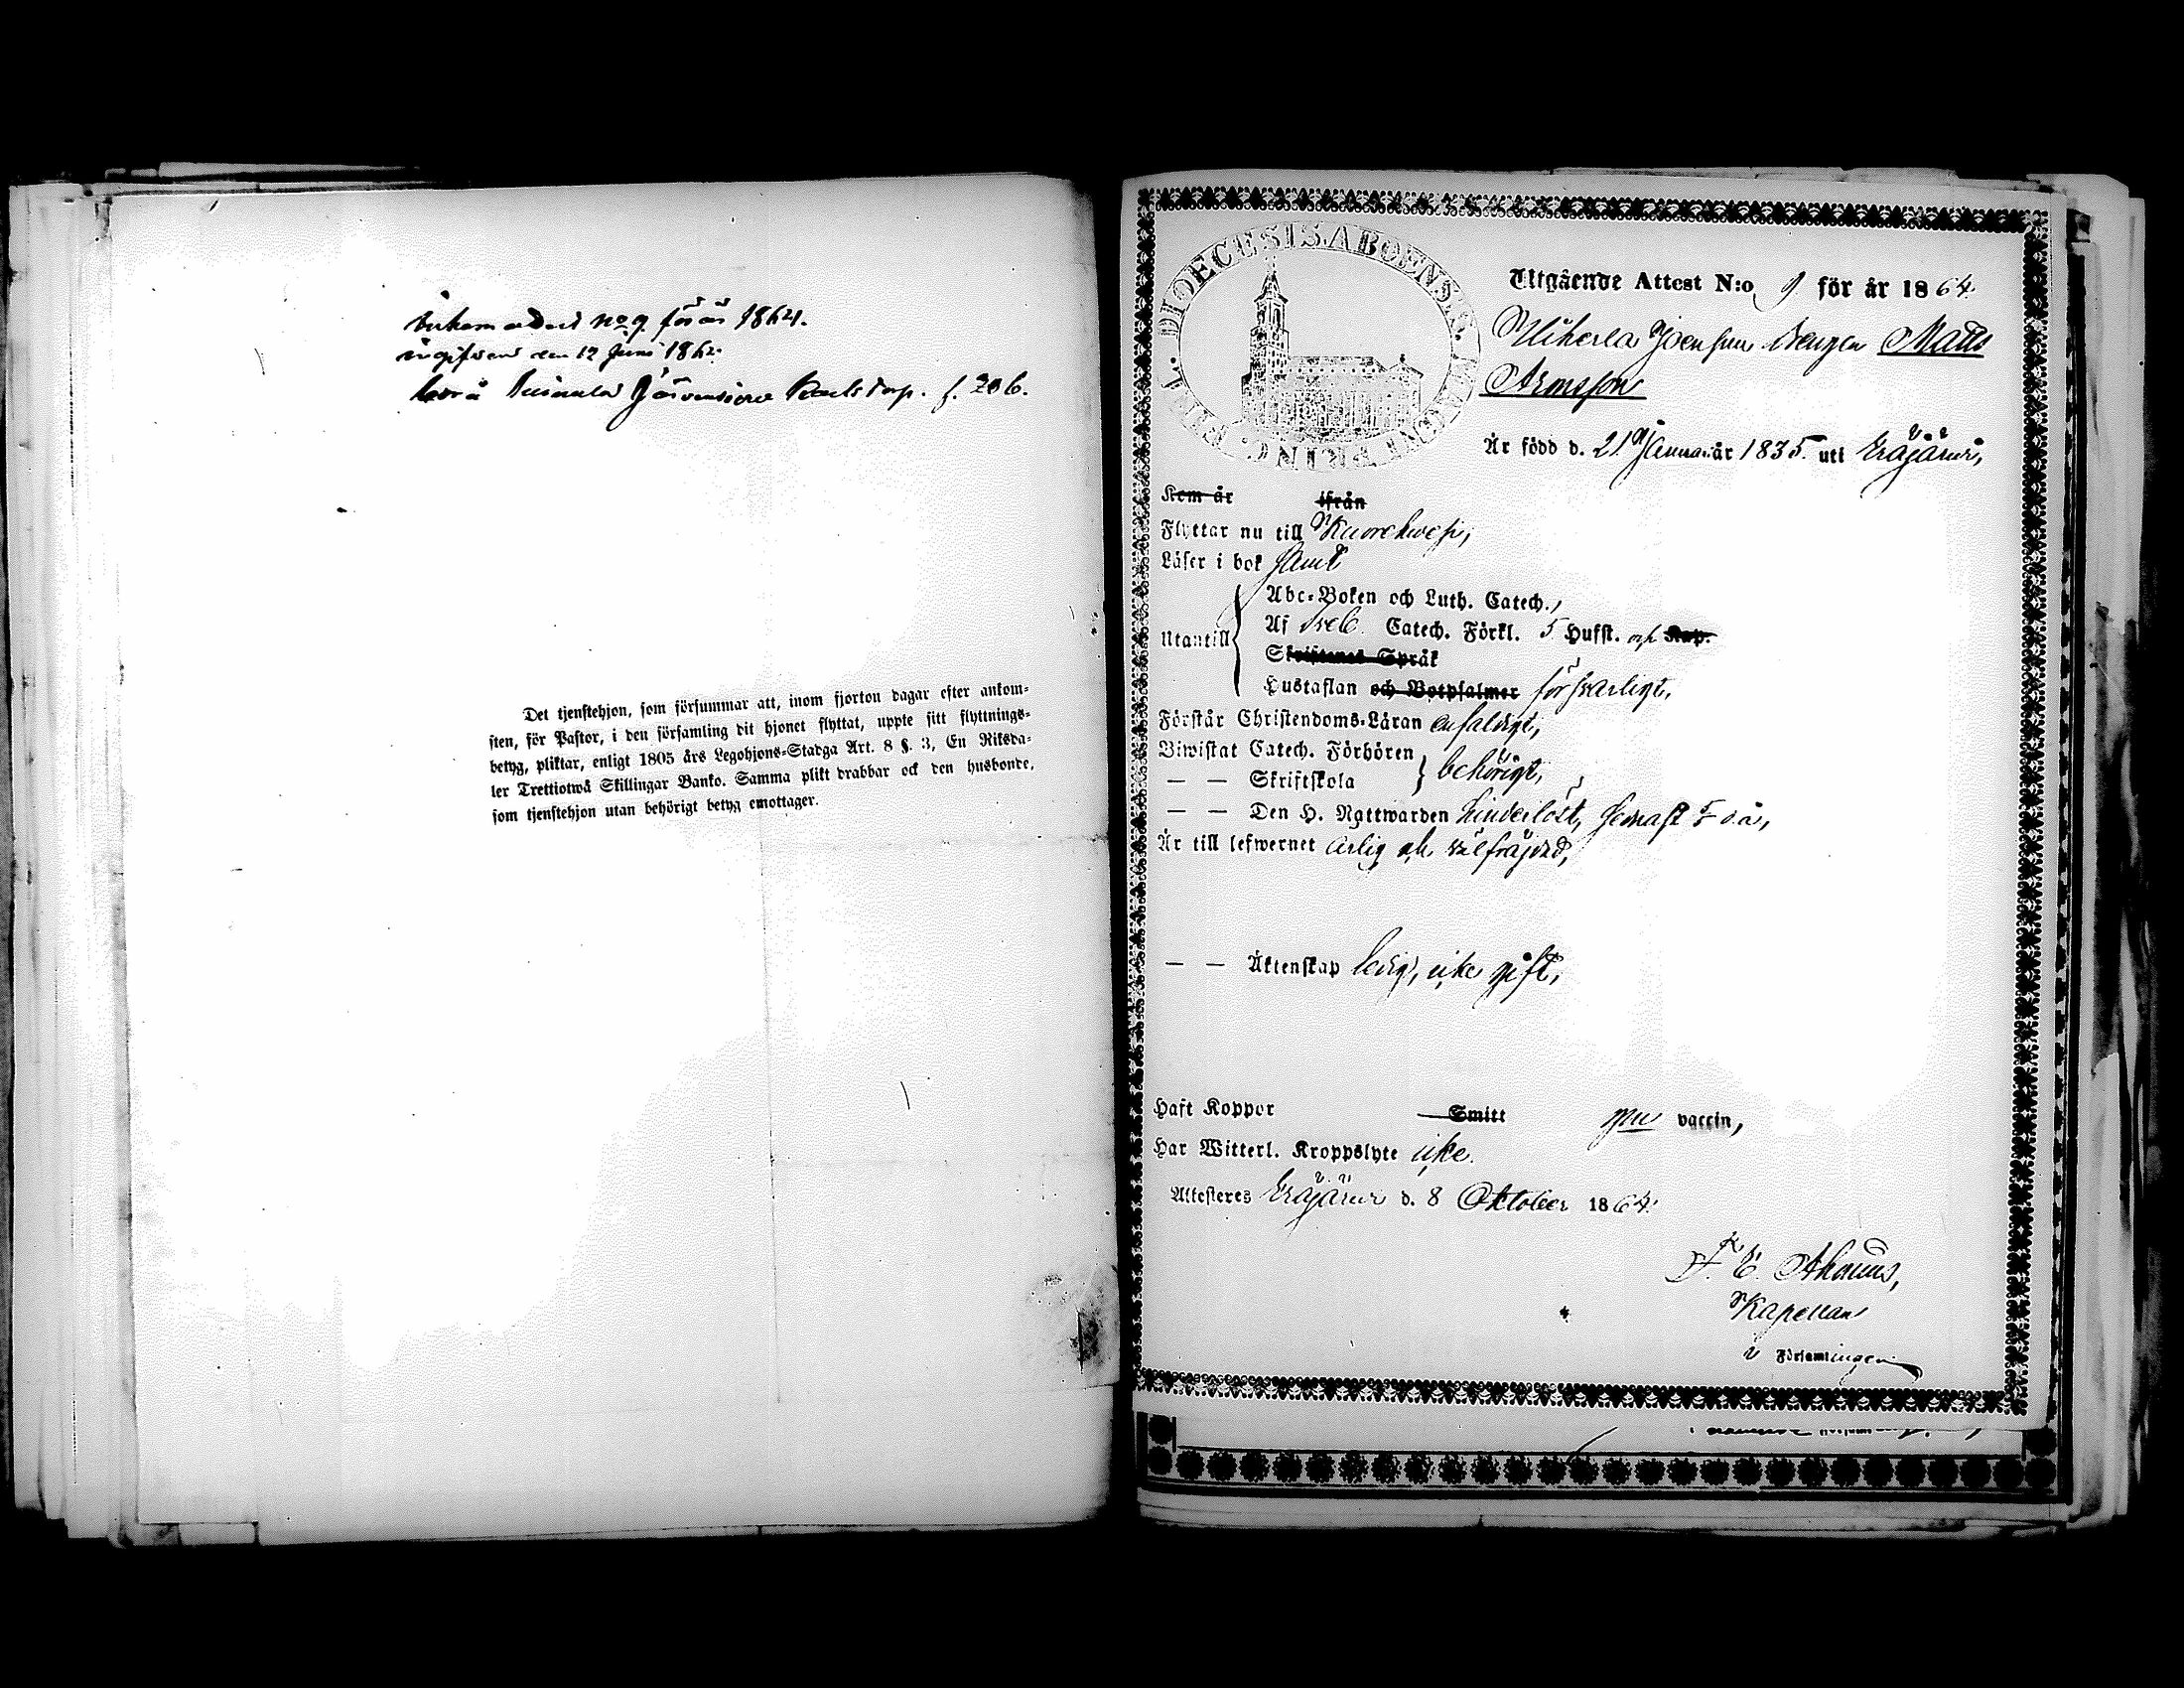 No 9 för år 1864.
den 12 Juni 186
f. 206.
Det tjenstehjon, som försummar att, inom fjorton dagar efter ankom-
sten, för Pastor, i den församling dit hjonet flyttat, uppte sitt flyttnings-
betyg, pliktar, enligt 1805 års Legohjons-Stadga Art. 8 §. 3, En Riksda-
ler Trettiotwå Skillingar Banko. Samma plikt drabbar ock den husbonde,
som tjenstehjon utan behörigt betyg emottager.
DIOECESIS ABOENSIS
Utgående Attest N:o 9 för år 1864.
drengen Matts
Är född d. 21 Januari år 1835. uti Eräjärvi,
Kom år ifrån
Flyttar nu till Kuorehvesi,
Läser i bok samt
Utantill
Abc-Boken och Luth. Catech.,
Af Catech. Förkl. 5 Hufst. och Kap.
Skriftenes Språk
Hustaflan och Botpsalmer försvarligt,
Förstår Christendoms-Läran enfaldigt,
Biwistat Catech. Förhören
— — Skriftskola behörigt,
— — Den H. Nattwarden hinderlöst, senast d.å.,
Är till lefwernet ärlig och välfräjdad,
— — Äktenskap ledig, icke gift,
Haft Koppor Smitt vaccin,
Har Witterl. Kroppslyte icke.
Attesteres Eräjärvi d. 8 Oktober 1864.
Kapellan
i Församlingen